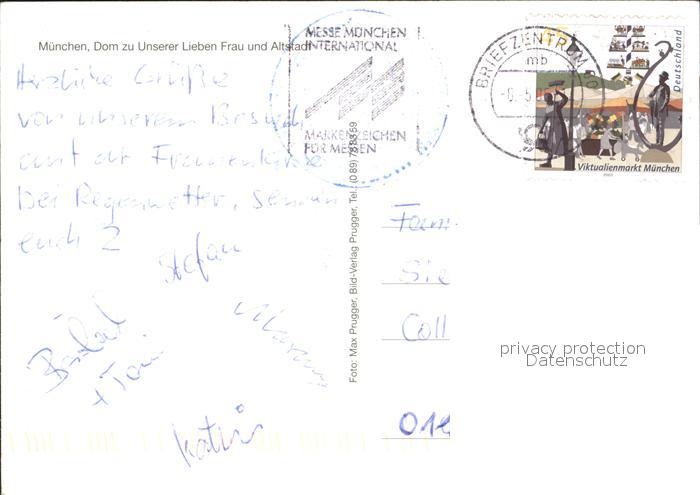 München, Dom zu Unserer Lieben Frau und Altstadt
MESSE MÜNCHEN
INTERNATIONAL
MARKENZEICHEN
FÜR MESSEN
BRIEFZENTRUM
mb
Deutschland
Viktualienmarkt München
Herzliche Grüße
von unserem Besuch
auf der Frauenkirche
bei Regenwetter, senden
euch 2
Stefan
Bärbel
+ Tom
Katrin
Foto: Max Prugger, Bild-Verlag Prugger, Tel. (089)
Fam.
Sie
Coll
01
privacy protection
Datenschutz